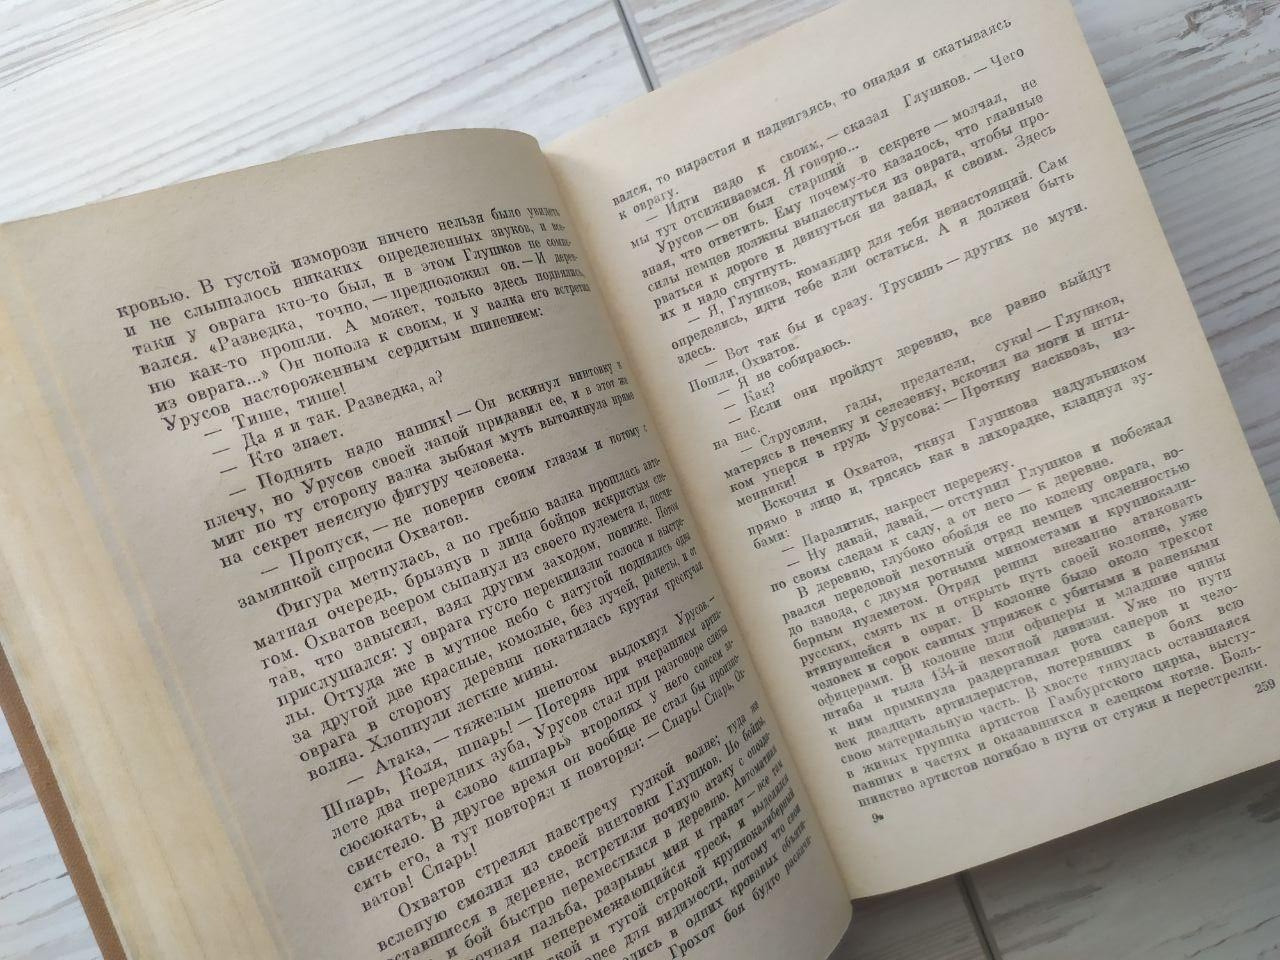 кровью. В густой изморози ничего нельзя было увидеть
и не слышалось никаких определенных звуков, и все-
таки у оврага кто-то был, и в этом Глушков не сомне-
вался. «Разведка, точно, — предположил он. — И дерев-
ню как-то прошли. А может, только здесь поднялись
из оврага...» Он пополз к своим, и у валка его встретил
Урусов настороженным сердитым шипением:
— Тише, тише!
— Да я и так. Разведка, а?
— Кто знает.
— Поднять надо наших! — Он вскинул винтовку к
плечу, но Урусов своей лапой придавил ее, и в этот же
миг по ту сторону валка зыбкая муть вытолкнула прямо
на секрет неясную фигуру человека.
— Пропуск, — не поверив своим глазам и потому с
заминкой спросил Охватов.
Фигура метнулась, а по гребню валка прошлась авто-
матная очередь, брызнув в лица бойцов искристым сне-
гом. Охватов веером сыпанул из своего пулемета и, посчи-
тав, что завысил, взял другим заходом, пониже. Потом
прислушался: у оврага густо перекипали голоса и выстре-
лы. Оттуда же в мутное небо с натугой поднялись одна
за другой две красные, комолые, без лучей, ракеты, и от
оврага в сторону деревни покатилась крутая трескучая
волна. Хлопнули легкие мины.
— Атака, — тяжелым шепотом выдохнул Урусов. —
Шпарь, Коля, шпарь! — Потеряв при вчерашнем артна-
лете два передних зуба, Урусов стал при разговоре слегка
сюсюкать, а слово «шпарь» второпях у него совсем
свистело. В другое время он вообще не стал бы произно-
сить его, а тут повторял и повторял: — Спарь! Спарь, Ох-
ватов! Спарь!
Охватов стрелял навстречу гулкой волне; туда же
вслепую смолил из своей винтовки Глушков. Но бойцы,
оставшиеся в деревне, встретили ночную атаку с опозда-
и бой быстро переместился в деревню. Автоматная
пальба, разрывы мин и гранат — все там
неперемежающийся треск, и выделялся
и тугой строкой крупнокалиберный
для видимости, потому что свои
в одних кровавых объяти-
Грохот боя будто раскачи-
вался, то вырастая и надвигаясь, то опадая и скатываясь
к оврагу.
— Идти надо к своим, — сказал Глушков. — Чего
мы тут отсиживаемся. Я говорю...
Урусов — он был старший в секрете — молчал, не
зная, что ответить. Ему почему-то казалось, что главные
силы немцев должны выплеснуться из оврага, чтобы про-
рваться к дороге и двинуться на запад, к своим. Здесь
их и надо спугнуть.
— Я, Глушков, командир для тебя ненастоящий. Сам
определись, идти тебе или остаться. А я должен быть
здесь.
— Вот так бы и сразу. Трусишь — других не мути.
Пошли, Охватов.
— Я не собираюсь.
— Как?
— Если они пройдут деревню, все равно выйдут
на нас.
— Струсили, гады, предатели, суки! — Глушков,
матерясь в печенку и селезенку, вскочил на ноги и шты-
ком уперся в грудь Урусова: — Проткну насквозь, из-
менники!
Вскочил и Охватов, ткнул Глушкова надульником
прямо в лицо и, трясясь как в лихорадке, клацнул зу-
бами:
— Паралитик, накрест перережу.
— Ну давай, давай, — отступил Глушков и побежал
по своим следам к саду, а от него — к деревне.
В деревню, глубоко обойдя ее по колену оврага, во-
рвался передовой пехотный отряд немцев численностью
до взвода, с двумя ротными минометами и крупнокали-
берным пулеметом. Отряд решил внезапно атаковать
русских, смять их и открыть путь своей колонне, уже
втянувшейся в овраг. В колонне было около трехсот
человек и сорок санных упряжек с убитыми и ранеными
офицерами. В колонне шли офицеры и младшие чины
штаба и тыла 134-й пехотной дивизии. Уже по пути
к ним примкнула раздерганная рота саперов и чело-
век двадцать артиллеристов, потерявших в боях всю
свою материальную часть. В хвосте тянулась оставшаяся
в живых группка артистов Гамбургского цирка, высту-
павших в частях и оказавшихся в елецком котле. Боль-
шинство артистов погибло в пути от стужи и перестрелки.
9*
259